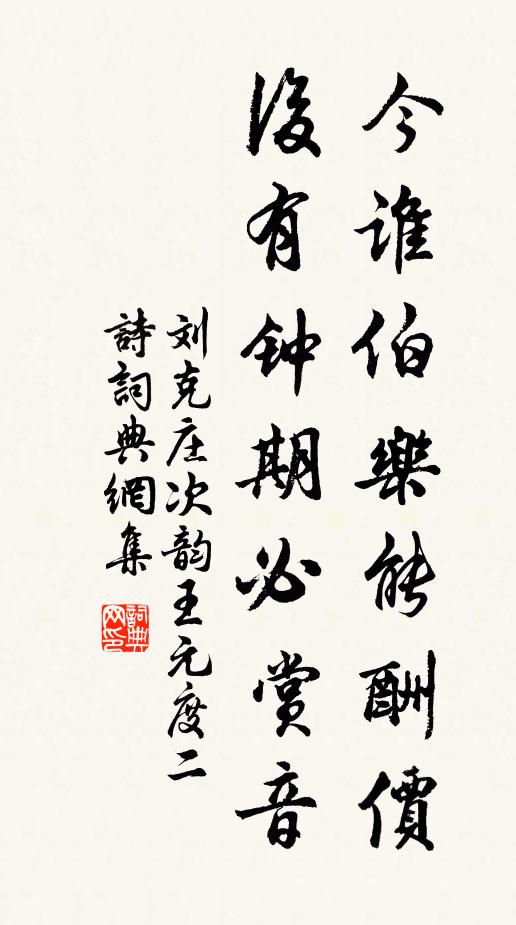 今谁伯樂能酬價
後有钟期必赏音
刘克庄次韵王元度二
詩詞典網集
詞典网印